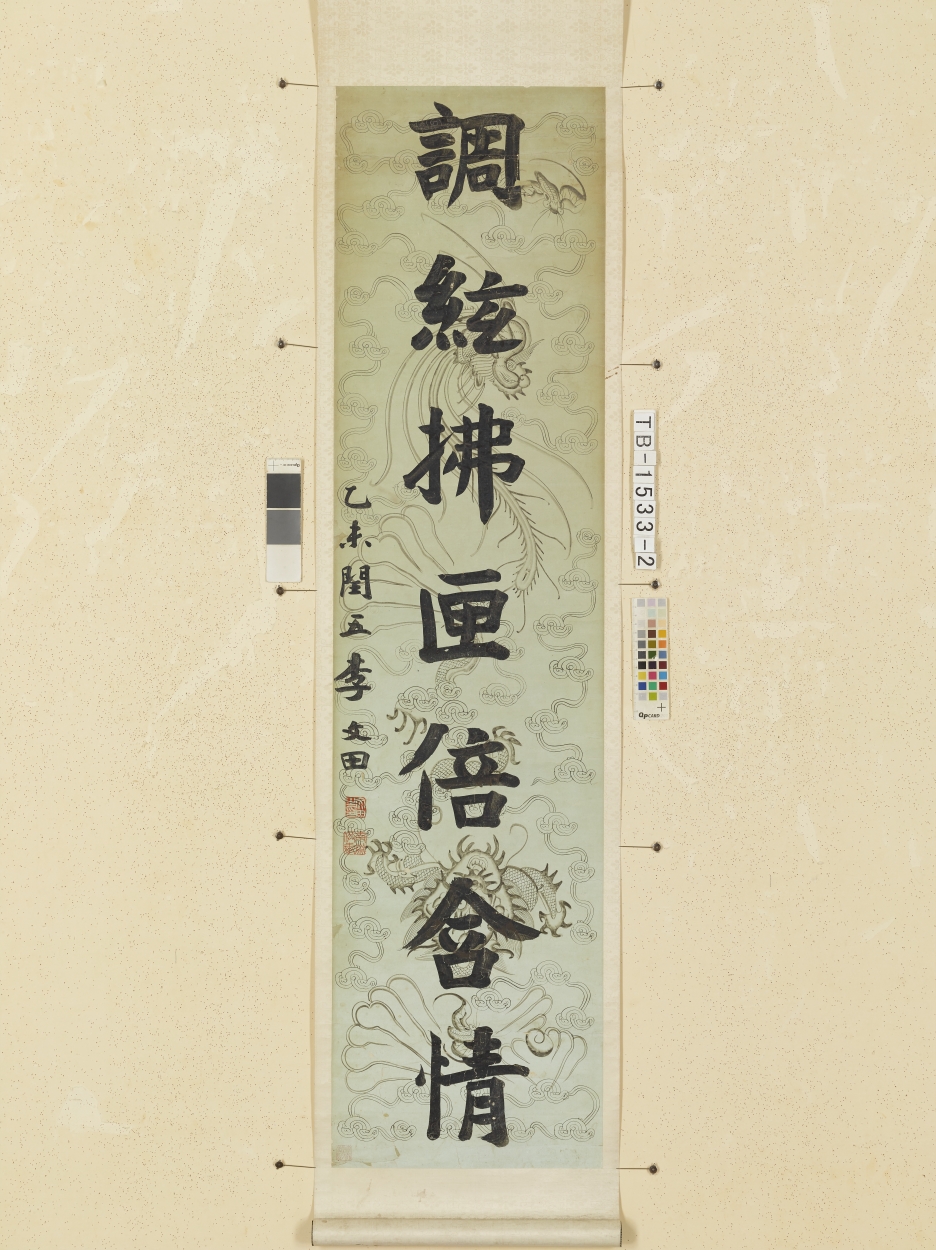 調絃拂匣倍含情
乙未閏五李文田
TB-1533-2
OpCARD